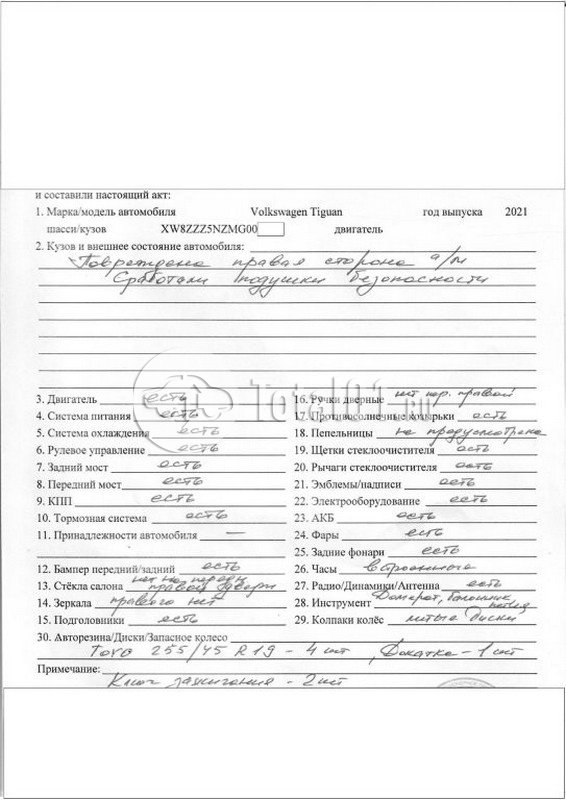 и составили настоящий акт:
1. Марка/модель автомобиля Volkswagen Tiguan год выпуска 2021
шасси/кузов XW8ZZZ5NZMG00 двигатель
2. Кузов и внешнее состояние автомобиля:
Повреждена правая сторона а/м
Сработали подушки безопасности
Total01.ru
3. Двигатель есть 16. Ручки дверные нет пер. правой
4. Система питания есть 17. Противосолнечные козырьки есть
5. Система охлаждения есть 18. Пепельницы не предусмотрена
6. Рулевое управление есть 19. Щетки стеклоочистителя есть
7. Задний мост есть 20. Рычаги стеклоочистителя есть
8. Передний мост есть 21. Эмблемы/надписи есть
9. КПП есть 22. Электрооборудование есть
10. Тормозная система есть 23. АКБ есть
11. Принадлежности автомобиля — 24. Фары есть
25. Задние фонари есть
12. Бампер передний/задний есть 26. Часы встроенные
13. Стёкла салона нет на передн правой двери 27. Радио/Динамики/Антенна есть
14. Зеркала правого нет 28. Инструмент Домкрат, балонник
15. Подголовники есть 29. Колпаки колёс литые диски
30. Авторезина/Диски/Запасное колесо
Toyo 255/45 R19 - 4 шт, Докатка - 1 шт
Примечание:
Ключ зажигания - 2шт